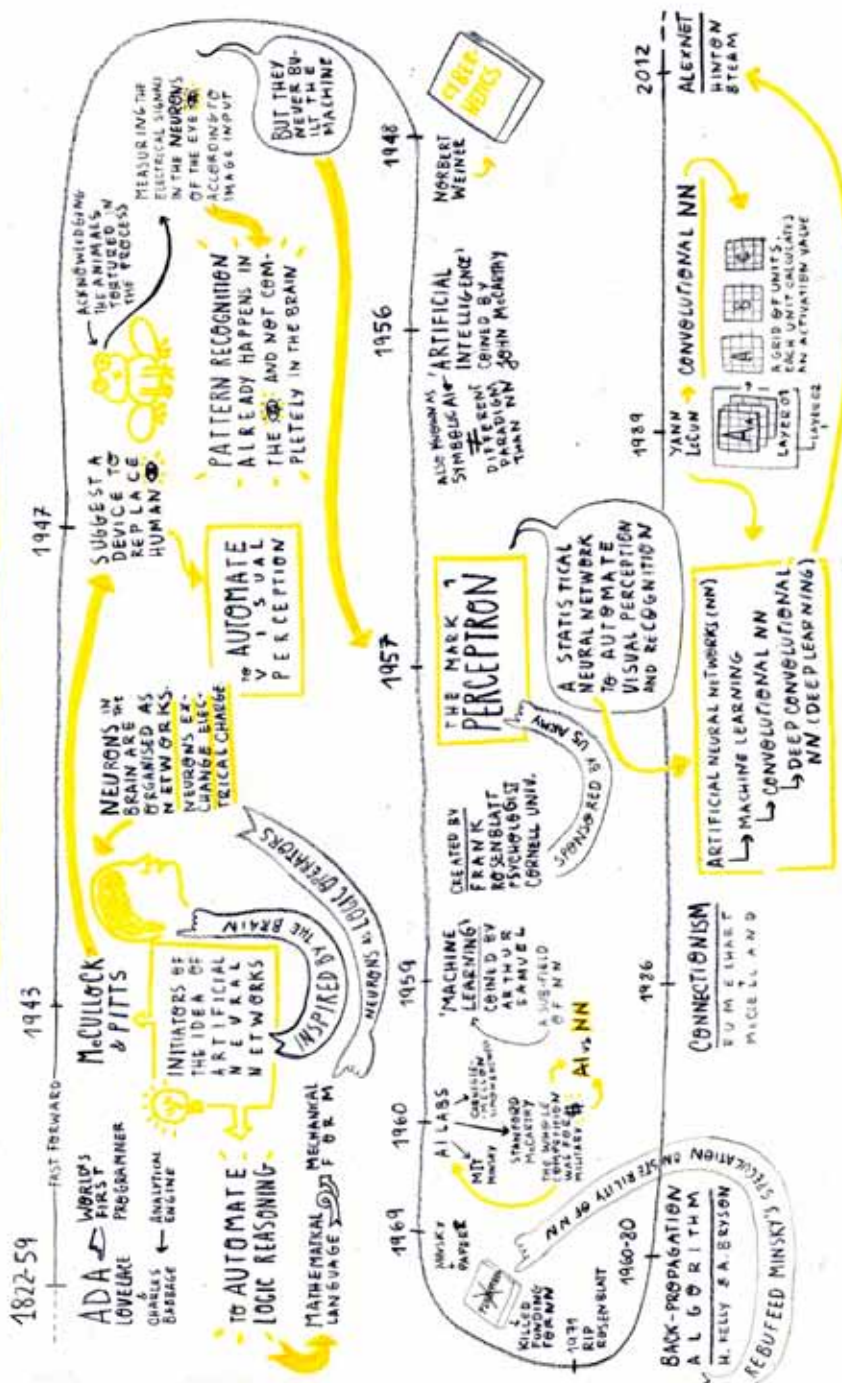 1822-59
FAST FORWARD
1943
1947
ADA
LOVELACE
&
CHARLES
BABBAGE
WORLD'S
FIRST
PROGRAMMER
ANALYTICAL
ENGINE
TO AUTOMATE
LOGIC REASONING
MATHEMATICAL
LANGUAGE
MECHANICAL
FORM
McCULLOCK
& PITTS
INITIATORS OF
THE IDEA OF
ARTIFICIAL
NEURAL
NETWORKS
INSPIRED BY THE BRAIN
NEURONS AS LOGIC OPERATORS
NEURONS IN
BRAIN ARE THE
ORGANISED AS
NETWORKS.
NEURONS EX-
CHANGE ELEC-
TRICAL CHARGE
SUGGEST A
DEVICE TO
REPLACE
HUMAN
TO AUTOMATE
VISUAL
PERCEPTION
ACKNOWLEDGING
THE ANIMALS
TORTURED IN
THE PROCESS
MEASURING THE
ELECTRICAL SIGNALS
IN THE NEURONS
OF THE EYE
ACCORDING TO
IMAGE INPUT
PATTERN RECOGNITION
ALREADY HAPPENS IN
THE AND NOT COM-
PLETELY IN THE BRAIN
BUT THEY
NEVER BU-
ILT THE
MACHINE
1948
NORBERT
WEINER
CYBER
NETICS
1956
'ARTIFICIAL
INTELLIGENCE'
COINED BY
JOHN McCARTHY
ALSO KNOWN AS
SYMBOLIC AI
≠
DIFFERENT
PARADIGM
THAN NN
1957
THE MARK 1
PERCEPTRON
A STATISTICAL
NEURAL NETWORK
TO AUTOMATE
VISUAL PERCEPTION
AND RECOGNITION
CREATED BY
FRANK
ROSENBLATT
PSYCHOLOGIST
CORNELL UNIV.
SPONSORED BY US ARMY
1959
'MACHINE
LEARNING'
COINED BY
ARTHUR
SAMUEL
A SUB-FIELD
OF NN
1960
AI LABS
MIT
MINSKY
STANFORD
McCARTHY
CARNEGIE-
MELLON
THE WHOLE
COMPETITION
WAS FOR
MILITARY $
AI vs NN
1969
MINSKY
PAPER
KILLED
FUNDING
FOR NN
1971
RIP
ROSENBLATT
1960-80
BACK-PROPAGATION
ALGORITHM
H. KELLY & A. BRYSON
REBUFEED MINSKY'S SPECULATION ON STERILITY OF NN
1986
CONNECTIONISM
ARTIFICIAL NEURAL NETWORKS (NN)
MACHINE LEARNING
CONVOLUTIONAL NN
DEEP CONVOLUTIONAL
NN (DEEP LEARNING)
1989
YANN
LECUN
CONVOLUTIONAL NN
A
LAYER 01
LAYER 02
A GRID OF UNITS.
EACH UNIT CALCULATES
AN ACTIVATION VALUE
2012
ALEXNET
HINTON
&TEAM